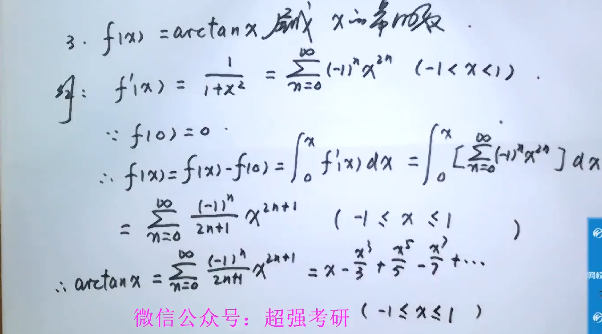 3. f(x) = arctanx 展成 x 的幂级数.
解: f'(x) = 1/(1+x²) = ∑_{n=0}^{∞} (-1)ⁿ x^{2n} (-1 < x < 1).
∵ f(0) = 0.
∴ f(x) = f(x) - f(0) = ∫₀ˣ f'(x) dx = ∫₀ˣ [∑_{n=0}^{∞} (-1)ⁿ x^{2n}] dx
= ∑_{n=0}^{∞} (-1)ⁿ/(2n+1) x^{2n+1} (-1 ≤ x ≤ 1)
∴ arctanx = ∑_{n=0}^{∞} (-1)ⁿ/(2n+1) x^{2n+1} = x - x³/3 + x⁵/5 - x⁷/7 + ⋯
(-1 ≤ x ≤ 1)
微信公众号：超强考研